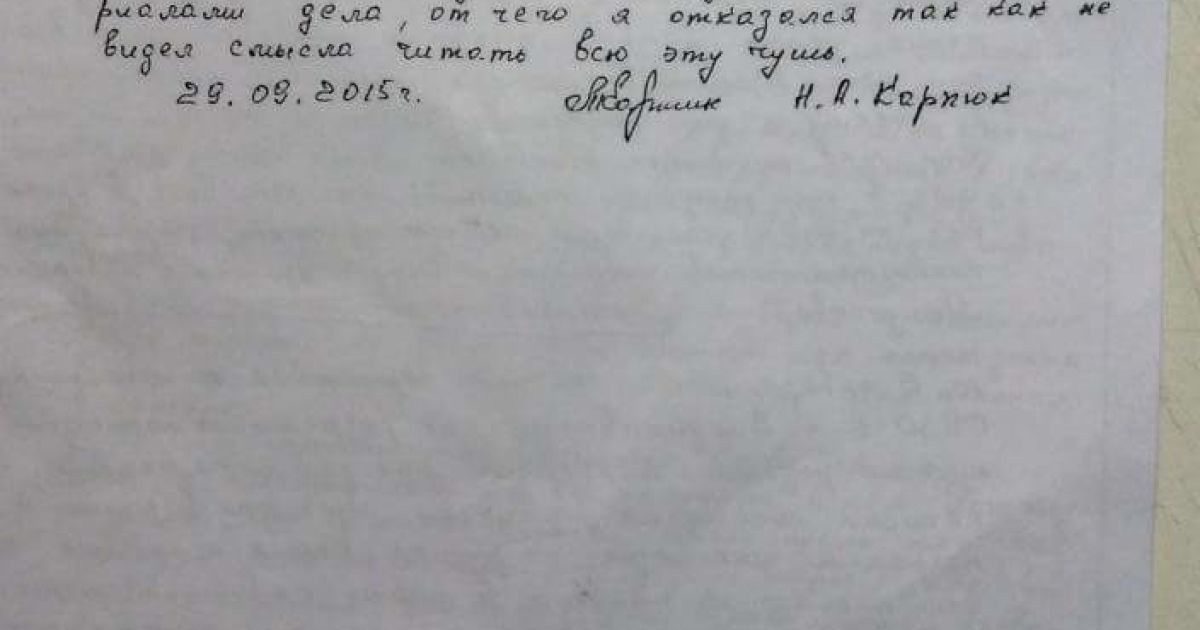 риалами дела, от чего я отказался так как не
видел смысла читать всю эту чушь.
29.09.2015г. Н. А. Карпюк